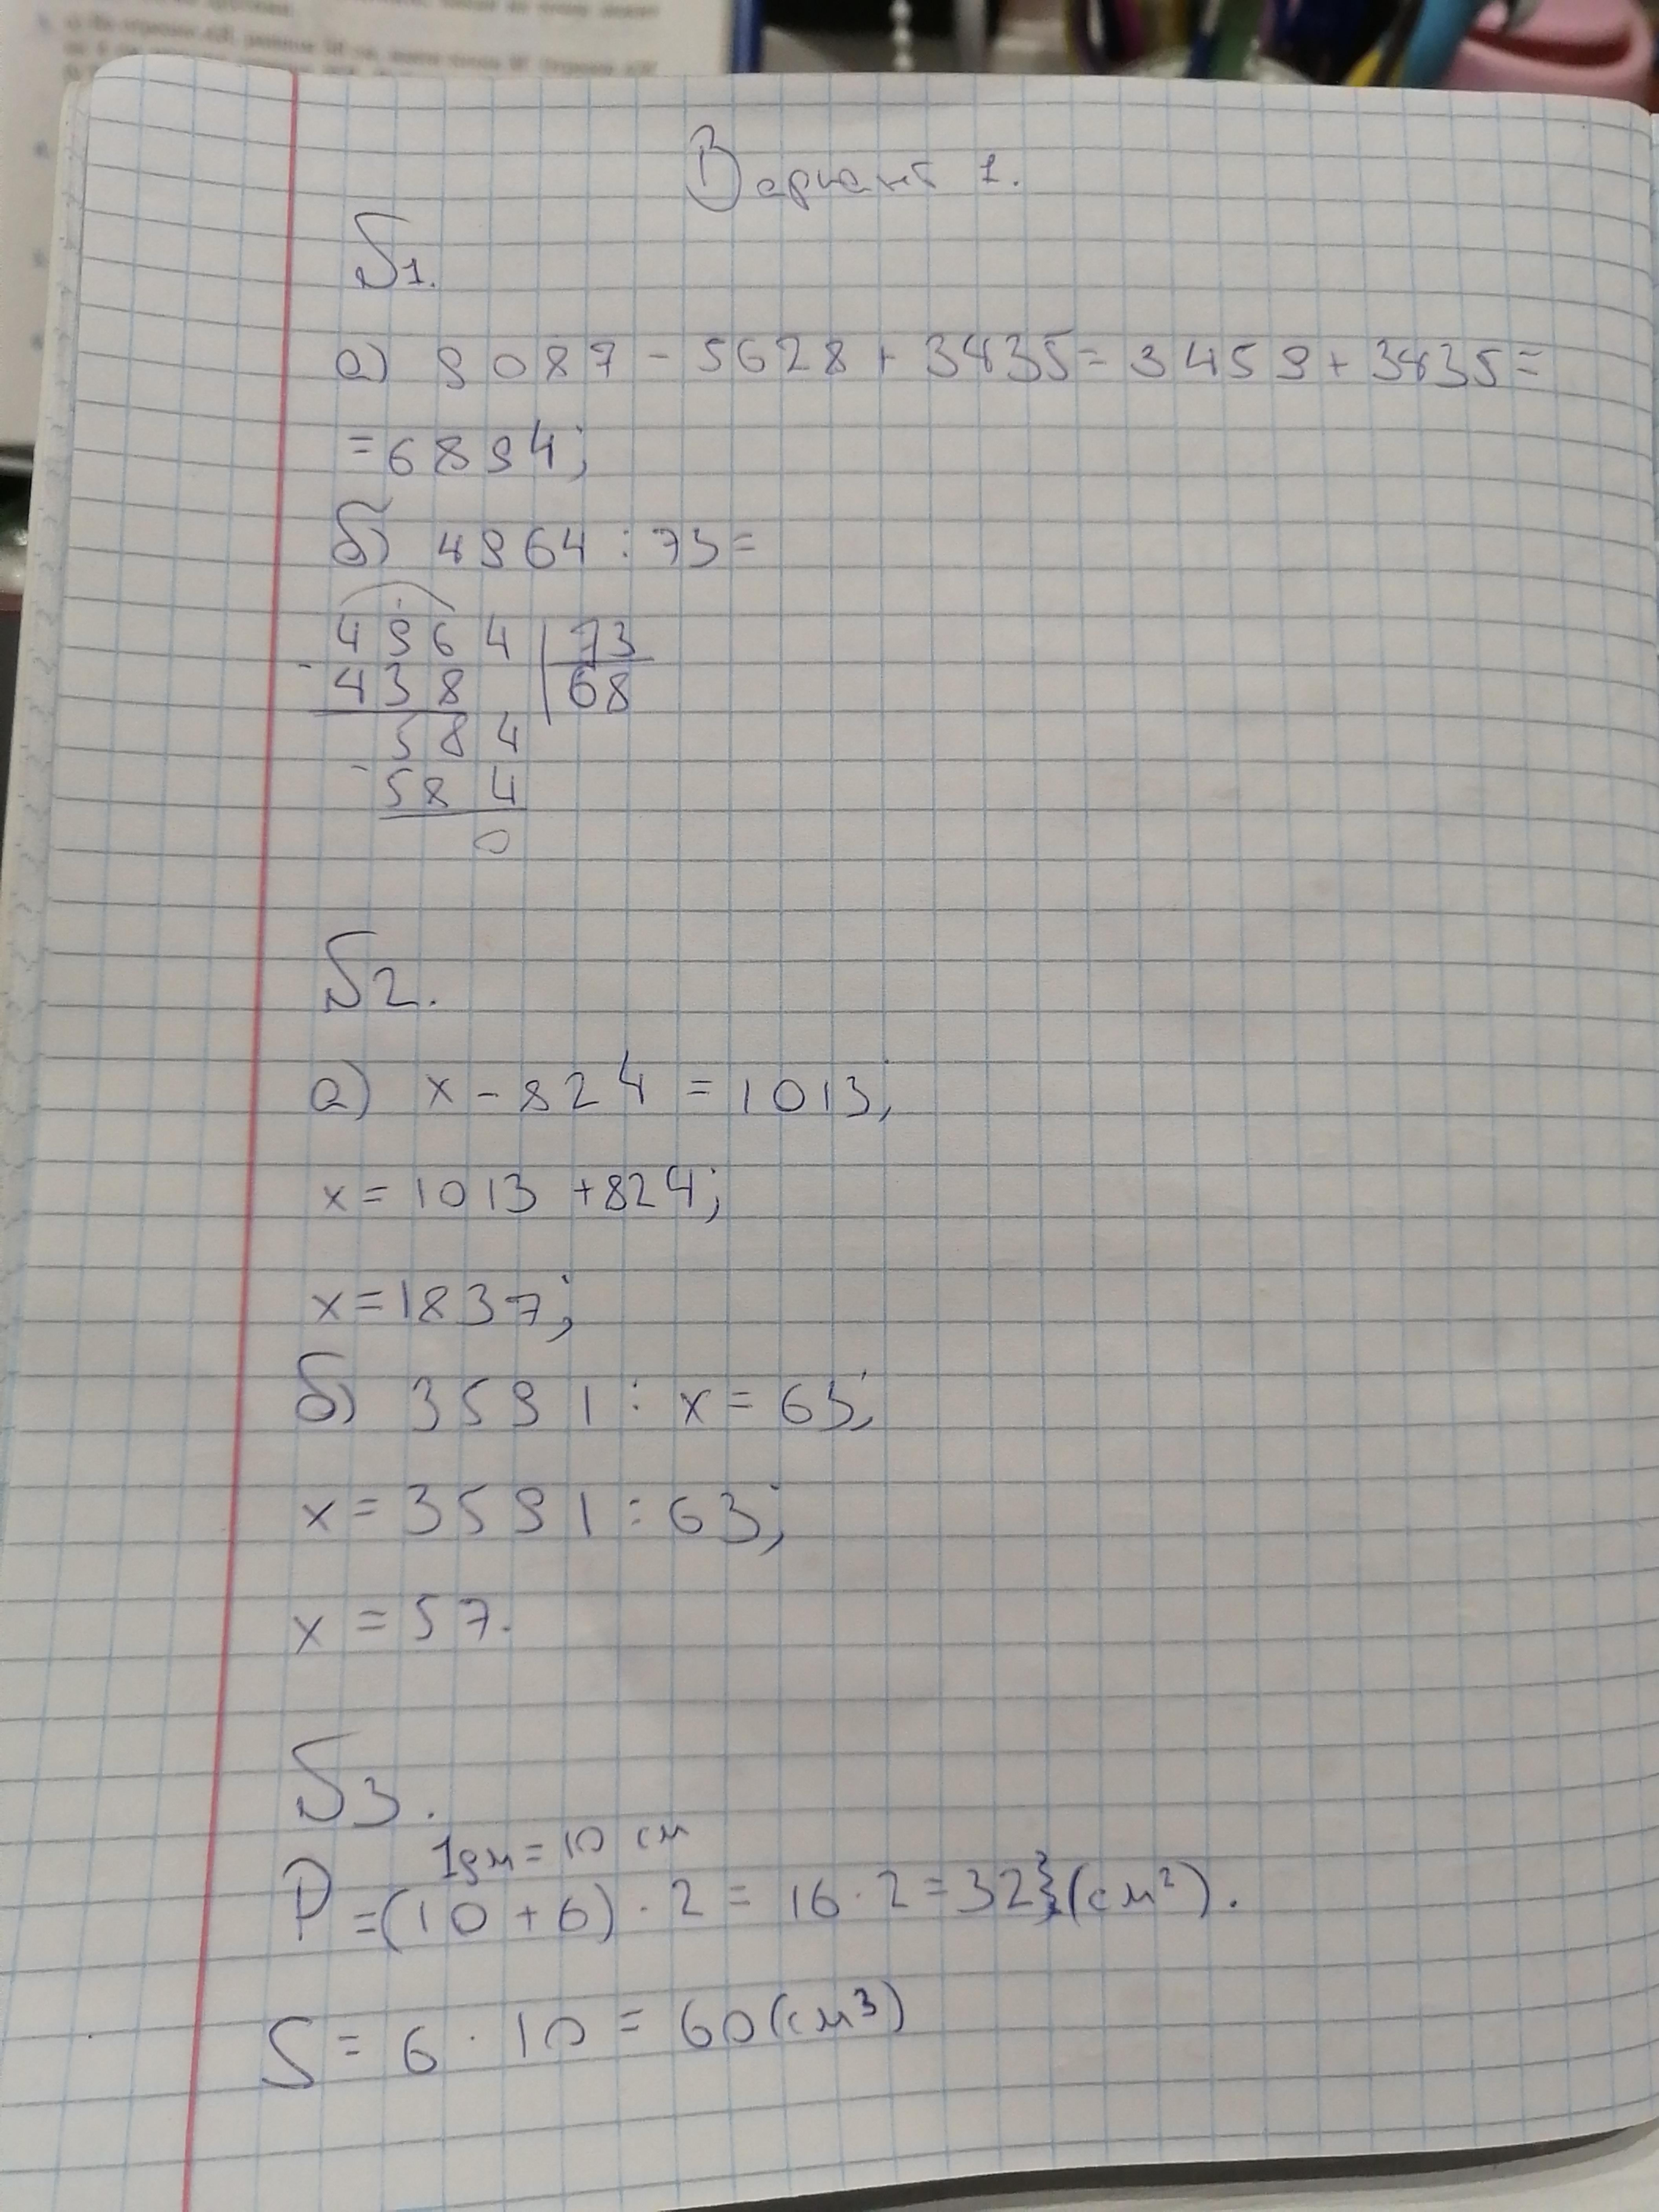 Вариант 1.
№1.
а) 9087 - 5628 + 3435 = 3459 + 3435 =
= 6894;
б) 4964 : 73 =
4964 | 73
- 438 | 68
584
- 584
0
№2.
а) x - 824 = 1013;
x = 1013 + 824;
x = 1837;
б) 3591 : x = 63;
x = 3591 : 63;
x = 57.
№3.
1дм = 10 см
P = (10 + 6) · 2 = 16 · 2 = 32 (см²).
S = 6 · 10 = 60 (см³)